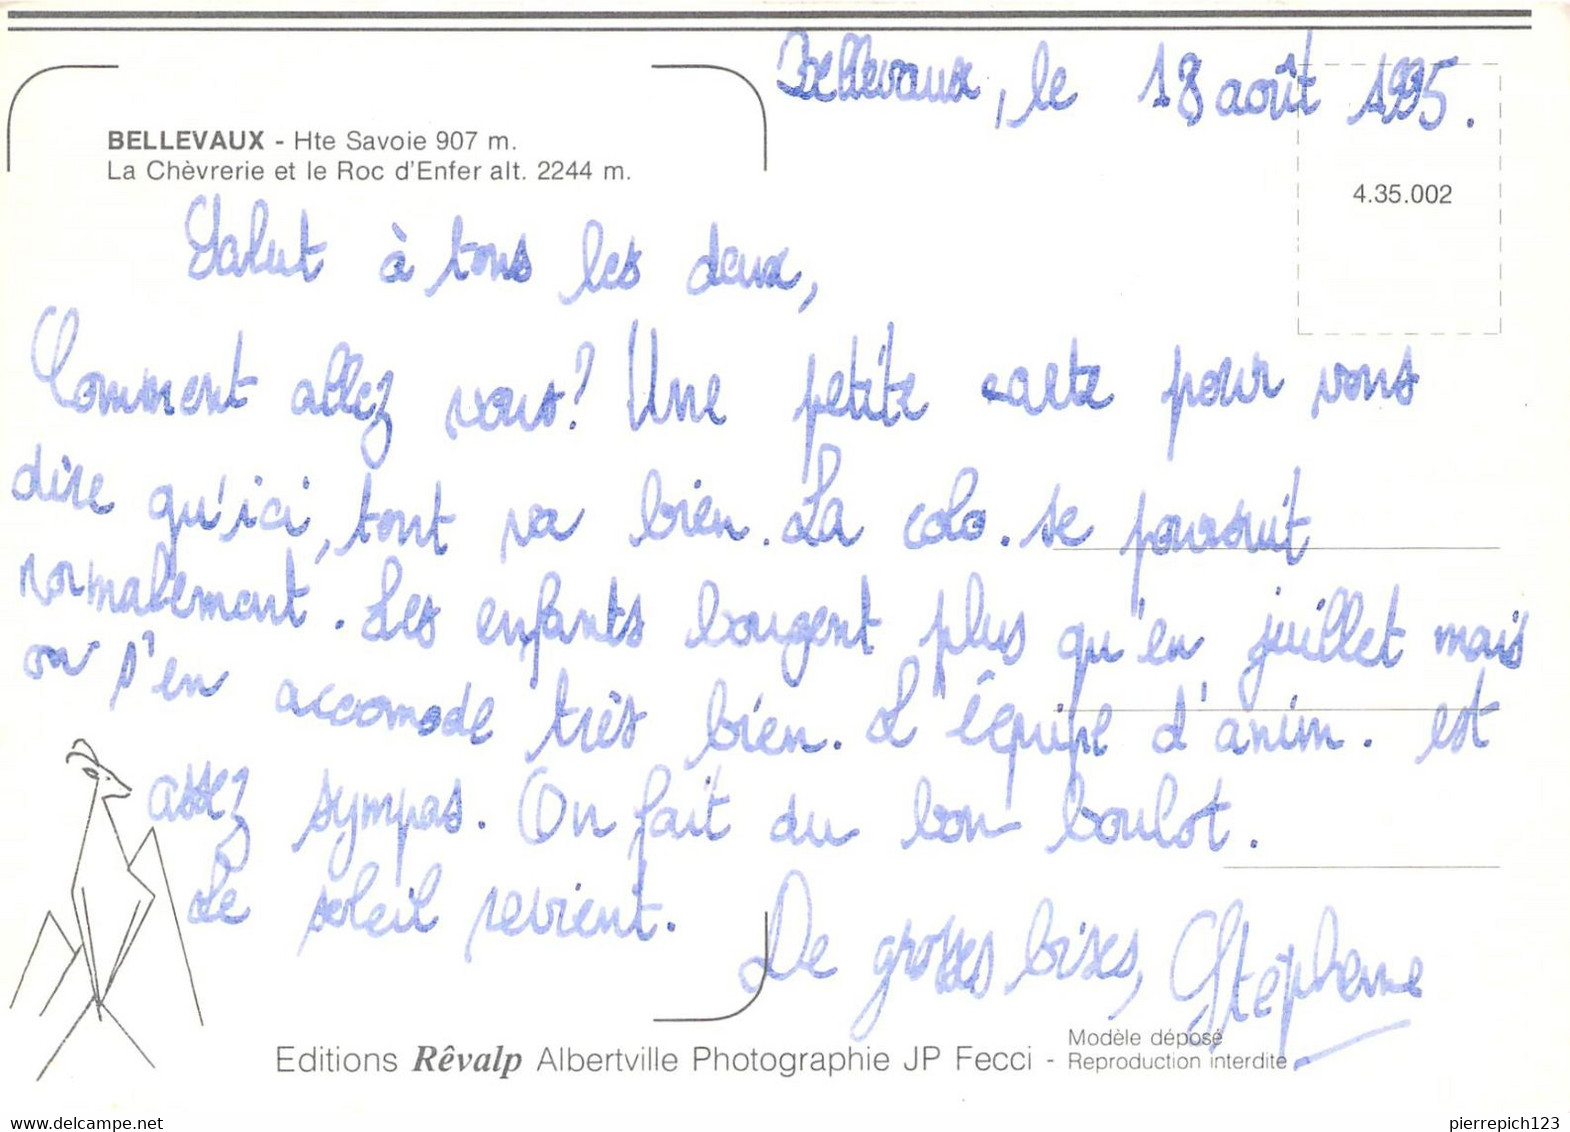 Bellevaux, le 18 août 1995.
BELLEVAUX - Hte Savoie 907 m.
La Chèvrerie et le Roc d'Enfer alt. 2244 m.
4.35.002
Salut à tous les deux,
Comment allez vous? Une petite carte pour vous
dire qu'ici, tout va bien. La colo. se poursuit
normalement. Les enfants bougent plus qu'en juillet mais
on s'en accomode très bien. L'équipe d'anim. est
assez sympas. On fait du bon boulot.
Le soleil revient.
De grosses bises, Stéphane
Editions Rêvalp Albertville Photographie JP Fecci - Modèle déposé
Reproduction interdite
pierrepich123